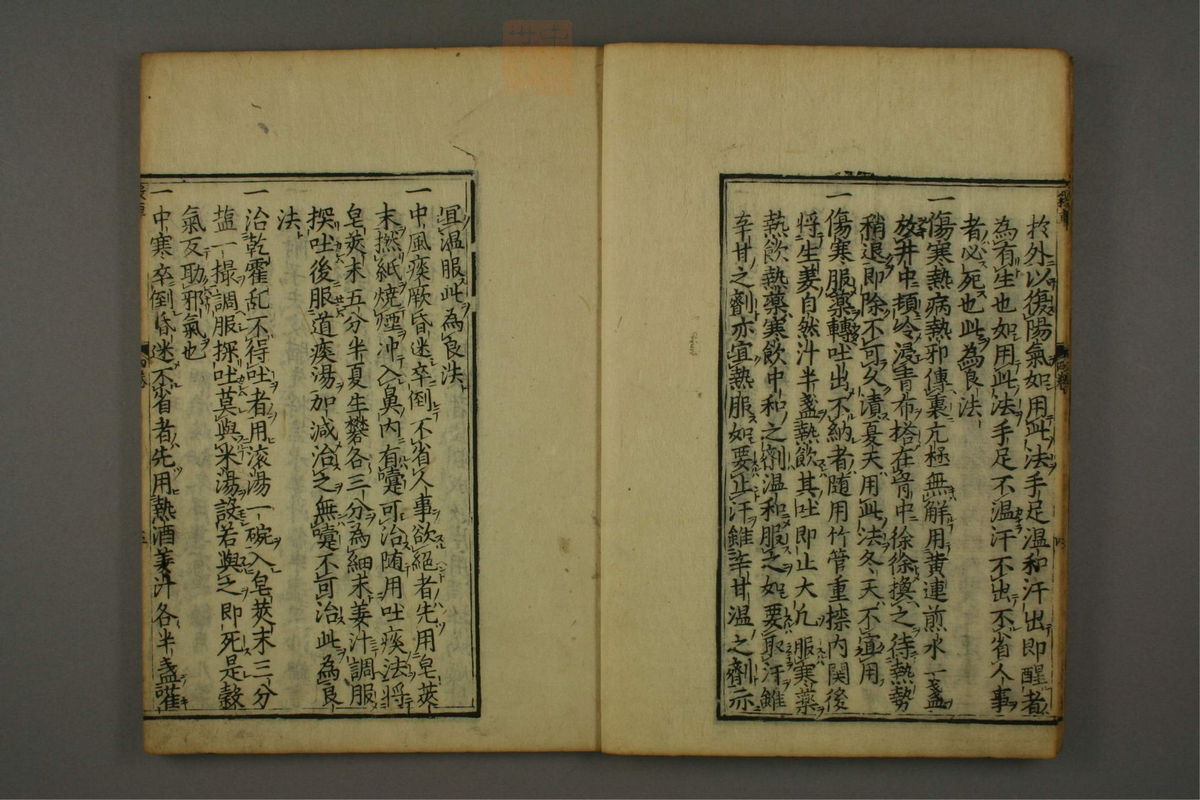 於外以復陽氣如用此法手足溫和汗出即醒者
為有生也如用此法手足不溫汗不出不省人事
者必死也此為良法
一傷寒熱病熱邪傳裏亢極無解用黃連煎水一盞
放井中頓冷浸青布搭在胷中徐徐換之待熱勢
稍退即除不可久漬夏天用此法冬天不宜用
一傷寒服藥轉吐出不納者随用竹管重㮇內関後
將生姜自然汁半盞熱飲其吐即止大凢服寒藥
熱飲熱藥寒飲中和之劑溫和服之如要取汗雖
辛甘之劑亦宜熱服如要止汗雖辛甘溫之劑亦
宜溫服此為良法
一中風痰厥昏迷卒倒不省人事欲絕者先用皂莢
末撚紙燒煙冲入鼻內有嚏可治随用吐痰法將
皂莢末五分半夏生礬各三分為細末姜汁調服
探吐後服道痰湯加減治之無嚏不可治此為良
法
一治乾霍乱不得吐者用滚湯一碗入皂莢末三分
塩一撮調服探吐莫與米湯設若與之即死是穀
氣反助邪氣也
一中寒卒倒昏迷不省者先用熱酒姜汁各半盞灌